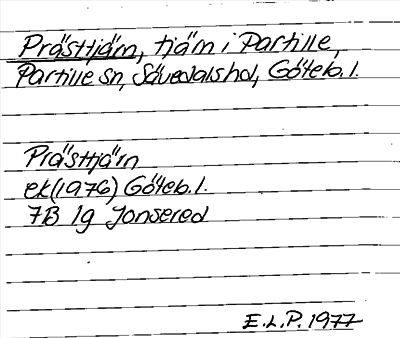 Prästtjärn, tjärn i Partille,
Partille sn, Sävedals hd, Göteb. l.
Prästtjärn
ek (1976) Göteb. l.
7B 1g Jonsered
E.L.P. 1977